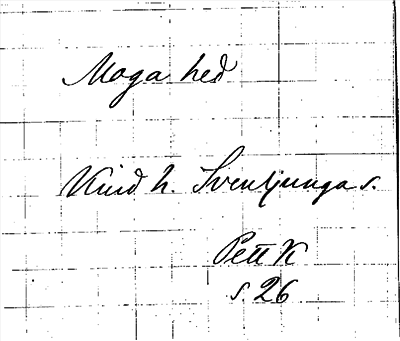 Moga hed
Kind h. Svenljunga s.
Pett K
s. 26